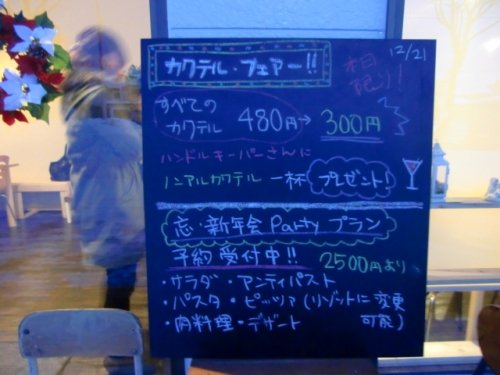 12/21
カクテル・フェアー!!
本日
限り!
すべての
カクテル 480円→300円
ハンドルキーパーさんに
ノンアルカクテル 一杯 プレゼント!
忘・新年会 Party プラン
予約受付中!! 2500円より
・サラダ・アンティパスト
・パスタ・ピッツァ(リゾットに変更
可能)
・肉料理・デザート